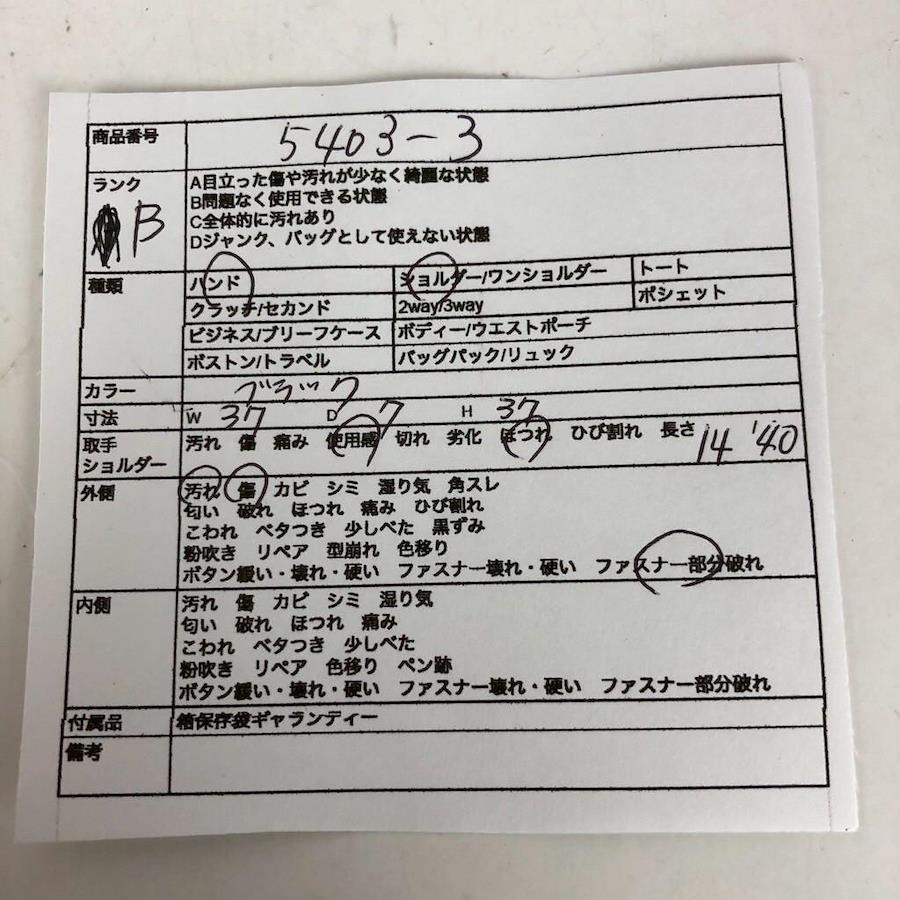 商品番号 5403-3
ランク B
A目立った傷や汚れが少なく綺麗な状態
B問題なく使用できる状態
C全体的に汚れあり
Dジャンク、バッグとして使えない状態
種類 ハンド ショルダー/ワンショルダー トート
クラッチ/セカンド 2way/3way ポシェット
ビジネス/ブリーフケース ボディー/ウエストポーチ
ボストン/トラベル バッグパック/リュック
カラー ブラック
寸法 W 37 D 7 H 37
取手 汚れ 傷 痛み 使用感 切れ 劣化 ほつれ ひび割れ 長さ 14 '40
ショルダー
外側 汚れ 傷 カビ シミ 湿り気 角スレ
匂い 破れ ほつれ 痛み ひび割れ
こわれ ベタつき 少しべた 黒ずみ
粉吹き リペア 型崩れ 色移り
ボタン緩い・壊れ・硬い ファスナー壊れ・硬い ファスナー部分破れ
内側 汚れ 傷 カビ シミ 湿り気
匂い 破れ ほつれ 痛み
こわれ ベタつき 少しべた
粉吹き リペア 色移り ペン跡
ボタン緩い・壊れ・硬い ファスナー壊れ・硬い ファスナー部分破れ
付属品 箱保存袋ギャランティー
備考